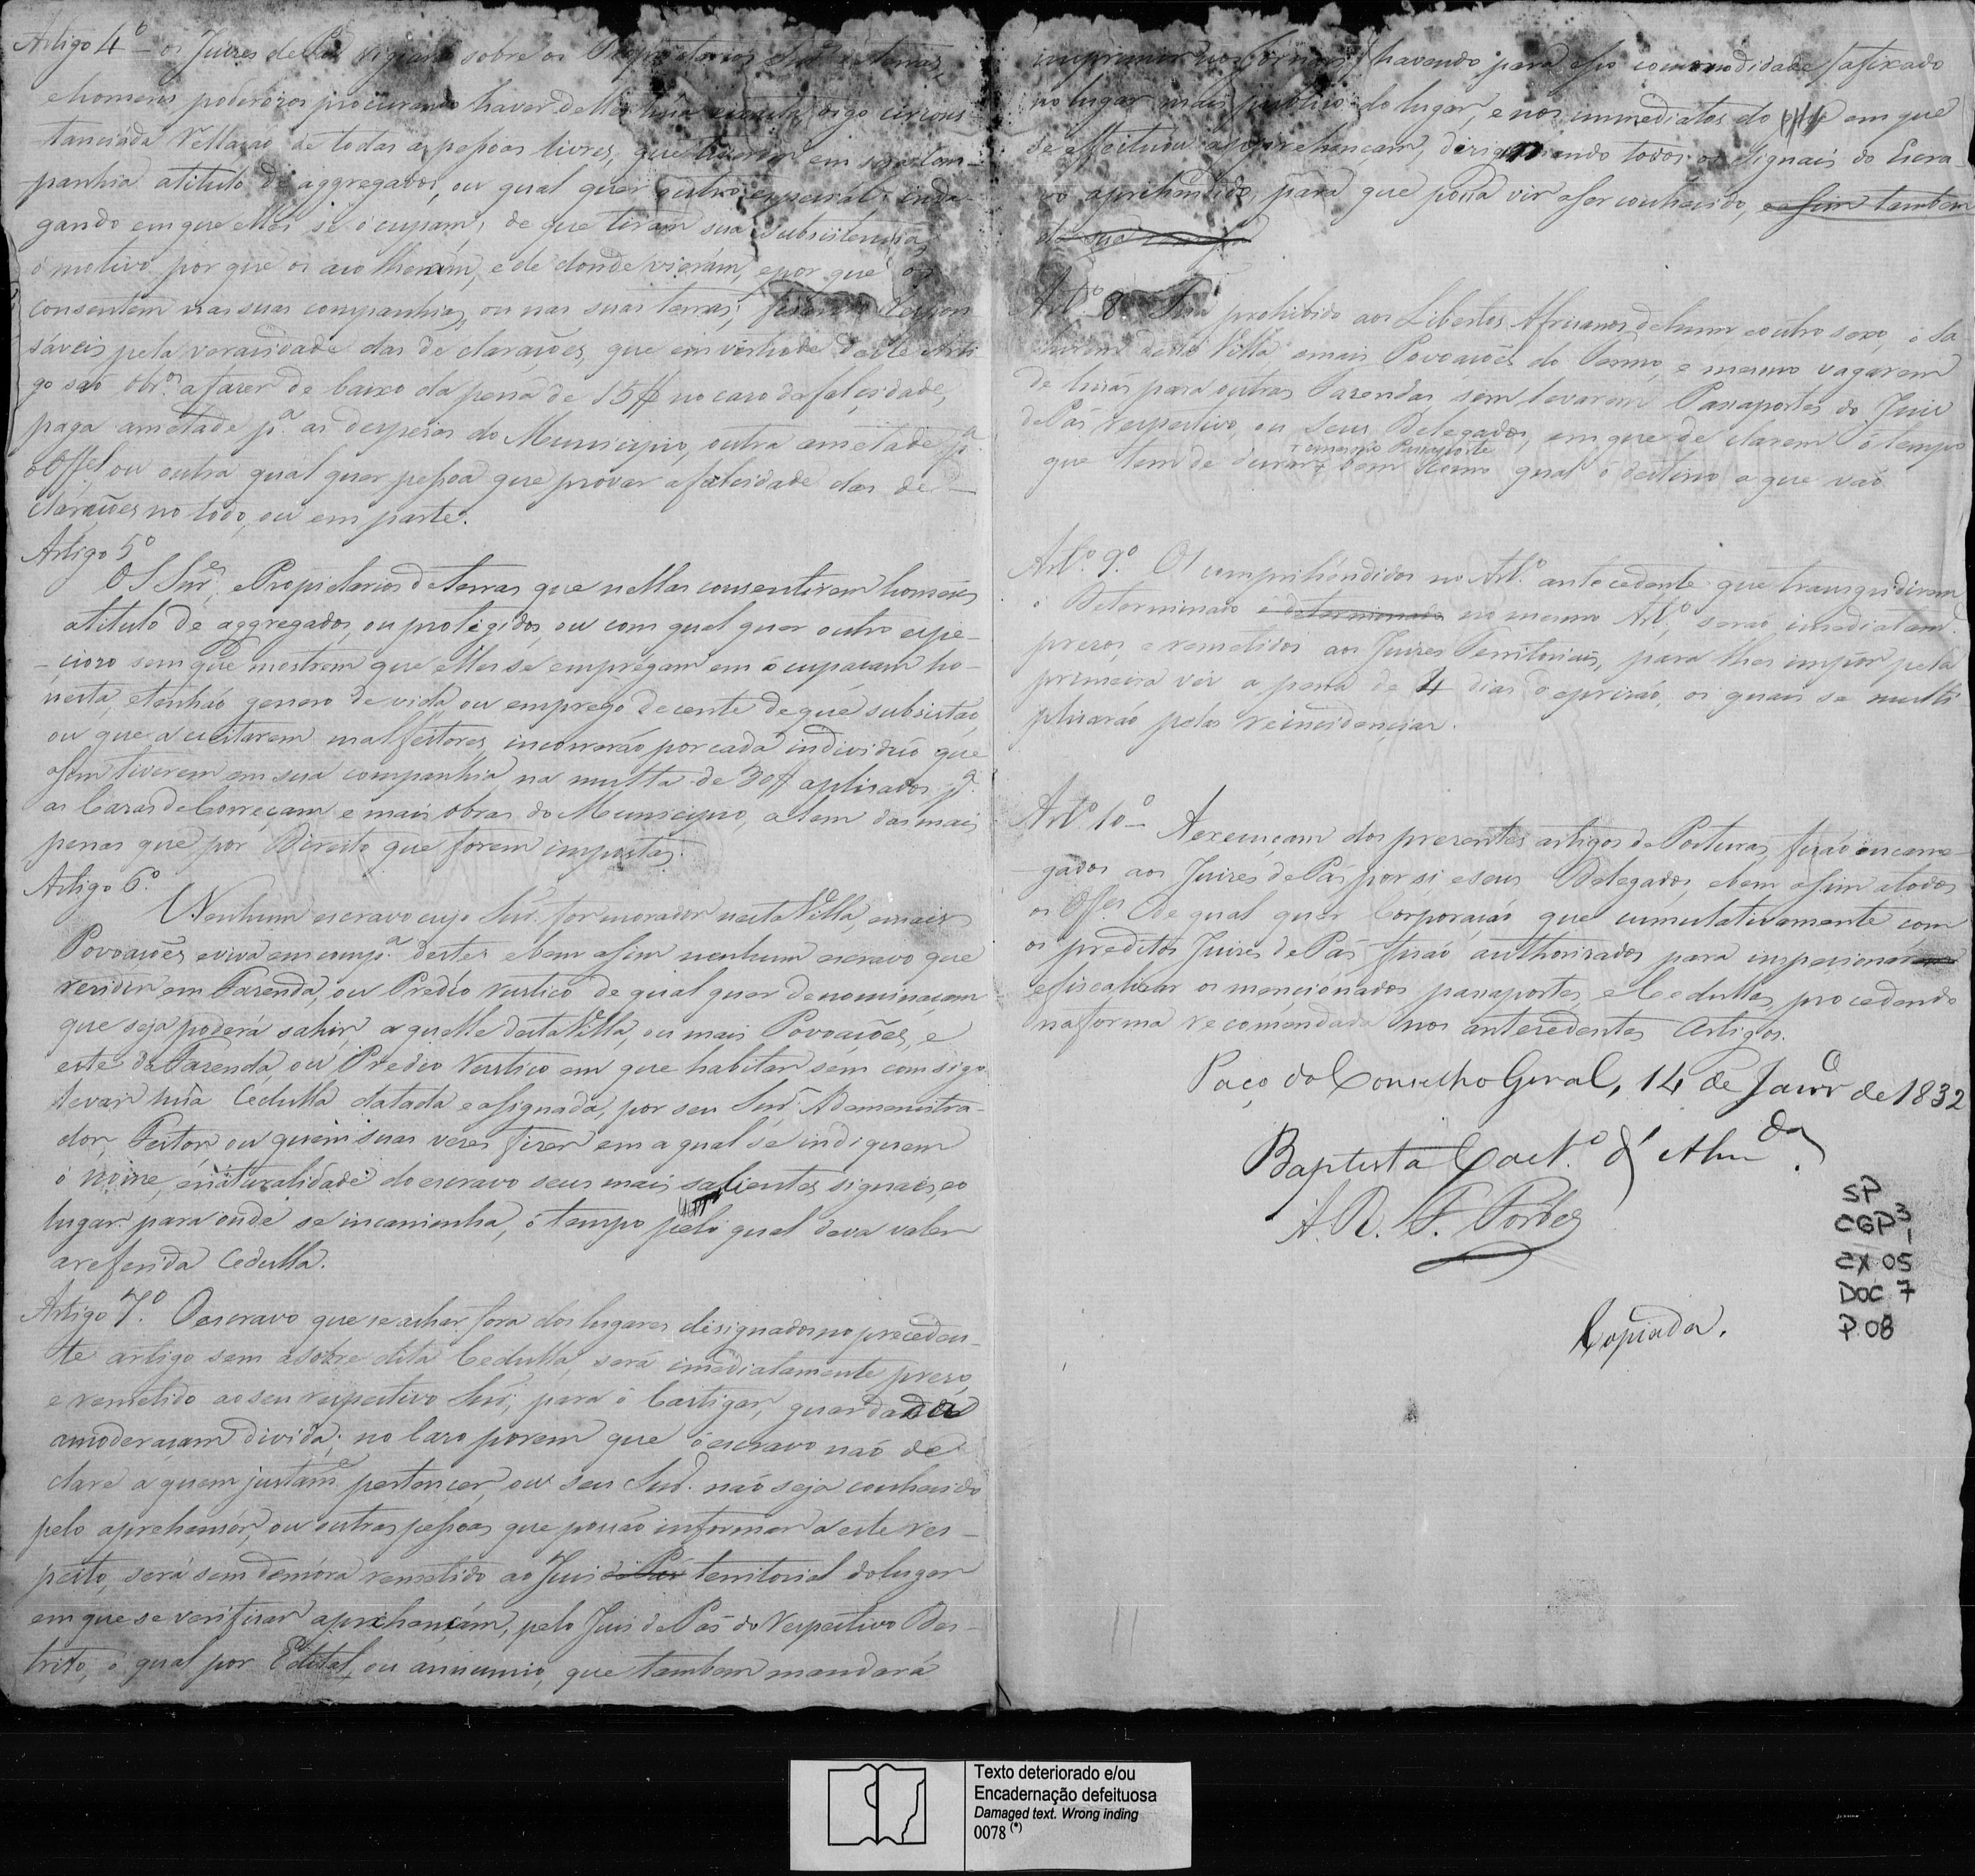 Artigo 4º — os Juizes de Paz vigiarão sobre os Proprietarios de terras,
e homens poderozos procurando haver delles huma digo circuns
tanciáda Rellação, de todas as pessoas livres, que tiverem em sua com-
panhia atitulo de aggregados, ou qual quer outro especial: inda-
gando em que elles se ocupam, de que tiram sua subsistencia,
o motivo por que os acolheram, e de donde vierám, e por que os
consentem nas suas companhias, ou nas suas terras; ficando respon
sáveis pela veracidade das declarações, que em virtude deste Arti
go saõ obrº. a fazer de baixo da pena de 15$ no caso da falcidade,
paga ametade pª. as despezas do Municipio, outra ametade pª.
o Offel. ou outra qual quer pessoa que provar afalcidade das de-
clarações no todo, ou em parte.
Artigo 5º
OS Snres. e Propietarios de terras que nellas consentirem homens
atitulo de aggregados, ou protegidos, ou com qual quer outro espe-
cioso sem que mostrem que elles se empregam em ocupacam ho-
nesta, e tenháo genero de vida, ou emprego decente de que subsistáo,
ou que acuitarem malfeitores, incorreráo por cada individuo que
asim tiverem em sua companhia, na multa de 30$ aplicados pª.
as Cazas de Correçam e mais obras do Municipio, alem das mais
penas que por Direito que forem impostas.
Artigo 6º.
Nenhum escravo cujo Snr. for morador nesta Villa, e mais
Povoações, e viva em compª. destes e bem asim nenhum escravo que
rezidir em Fazenda, ou Predio rustico de qual quer denominaçam
que seja poderá sahir, aquelle desta Villa, ou mais Povoações, e
este da Fazenda, ou Predio rustico em que habitar sem comsigo
levar húa Cedulla datada e asignada, por seu Snr. Ademenistra-
dor, Feitor, ou quem suas vezes fizer em a qual se indiquem
o nome, e naturalidade do escravo seus mais salientes signaes, e o
lugar para onde se incaminha, o tempo pelo qual deva valer
a referida Cedulla.
Artigo 7º. O escravo que se achar fora dos lugares designados no preceden-
te artigo sem a sobre dita Cedulla, será imediatamente prezo,
e remetido ao seu respectivo Snr., para o Castigar, guardada
a moderaçam divida; no Cazo porem que o escravo naó de
clare a quem justame. pertencer, ou seu Snr. náo seja conhecido
pelo aprehensór, ou outras pessoas que possáo informar a este res-
peito, será sem demóra remetido ao Juis de Pas territorial do lugar
em que se verificar aprehençám, pelo Juis de Pas do respectivo Des-
trito, o qual por Edital, ou anuncio, que tambem mandará
imprimir nos Jornaes (havendo para isso commodidade) afixado
no lugar mais publico do lugar, e nos immediatos do em que
se effeituou a aprehençam, dezignando todos os signais do Escra
vo aprehendido, para que possa vir a ser conhecido, e asim tambem
de sua
Artº. 8º. Fica prohibido aos Libertos Africanos de hum e outro sexo, o sa
hirem desta Villa e mais Povoacoês do Termo, e mesmo vagarem
de huas para outras Fazendas, sem levarem Passaportes do Juiz
de Pas respectivo, ou seus Delegados, em que declarem o tempo
o mesmo Passaporte
que tem de durar, bem como qual o destino a que vaõ
Artº. 9º. Os comprihéndidos no Artº. antecedente que transgridirem
o Determinado e determinado no mesmo Artº., seráo imediatame.
prezos, e remetidos aos Juizes Territoriais, para lhes impôr pela
primeira vez a pena de 4 dias de prizáo, os quais se multi
plicaráo pelas reincidencias.
Artº. 10º — A execuçam dos prezentes artigos de Posturas, ficáo encarre-
gados aos Juizes de Pas por si, e seus Delegados, e bem asim a todos
os Offes. de qual quer Corporaçáo que cumulativamente com
os preditos Juizes de Pas ficáo authorisados para inspecionar
e fiscalizar os mencionados passaportes, e Cedullas, procedendo
na forma recomendada nos antecedentes artigos.
Paço do Conselho Geral, 14 de Janrº de 1832
Baptista Caetº. d'Almda.
A. R. F. Forbes
SP
CGP3
1
CX 05
DOC 7
P. 08
Copiada.
Texto deteriorado e/ou
Encadernação defeituosa
Damaged text. Wrong inding
0078 (*)